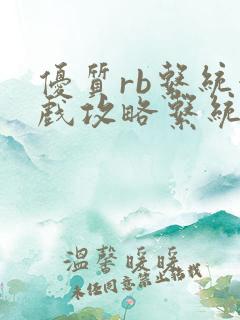 優質rb繫統
戲攻略繫統
溫馨暖暖
未經同意禁止轉載